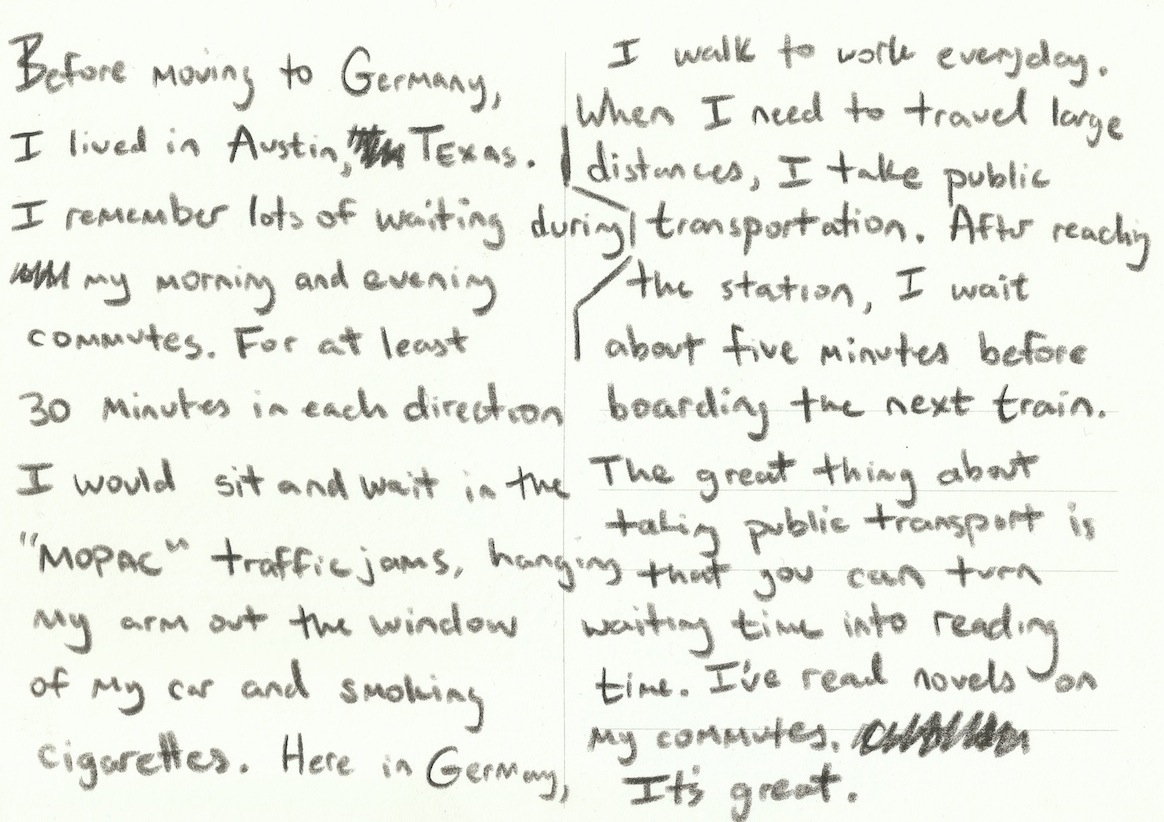 Before moving to Germany,
I lived in Austin, Texas.
I remember lots of waiting during
my morning and evening
commutes. For at least
30 minutes in each direction
I would sit and wait in the
"MOPAC" traffic jams, hanging
my arm out the window
of my car and smoking
cigarettes. Here in Germany,
I walk to work everyday.
When I need to travel large
distances, I take public
transportation. After reaching
the station, I wait
about five minutes before
boarding the next train.
The great thing about
taking public transport is
that you can turn
waiting time into reading
time. I've read novels on
my commutes.
It's great.